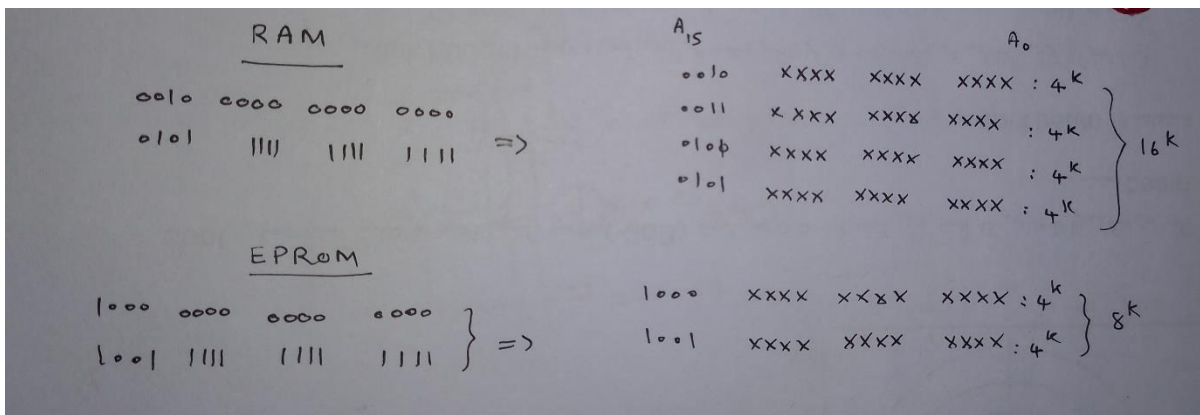 RAM
A15 A0
0010 0000 0000 0000
0101 1111 1111 1111 =>
0010 XXXX XXXX XXXX : 4K
0011 XXXX XXXX XXXX : 4K
0100 XXXX XXXX XXXX : 4K
0101 XXXX XXXX XXXX : 4K
16K
EPROM
1000 0000 0000 0000
1001 1111 1111 1111 =>
1000 XXXX XXXX XXXX : 4K
1001 XXXX XXXX XXXX : 4K
8K